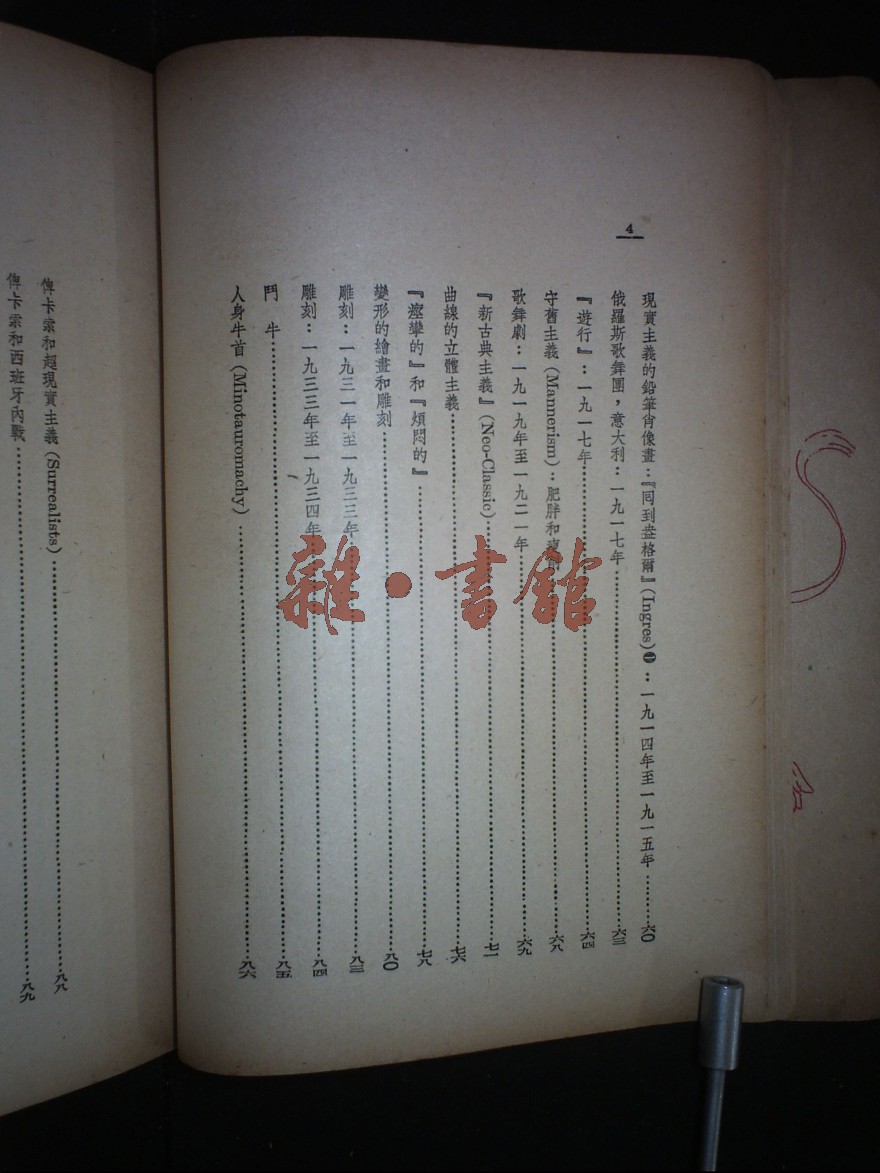 4
現實主義的鉛筆肖像畫：『回到盎格爾』(Ingres)❶：一九一四年至一九一五年………六〇
俄羅斯歌舞團，意大利：一九一七年………六三
『遊行』：一九一七年………六四
守舊主義(Mannerism)：肥胖和………六八
歌舞劇：一九一九年至一九二一年………六九
『新古典主義』(Neo-Classic)………七一
曲線的立體主義………七六
『痙攣的』和『煩悶的』………七八
變形的繪畫和雕刻………八〇
雕刻：一九三一年至一九三三年………八三
雕刻：一九三三年至一九三四年………八四
鬥　牛………八五
人身牛首(Minotauromachy)………八六
俾卡索和超現實主義(Surrealists)………八八
俾卡索和西班牙內戰………八九
雜·書館